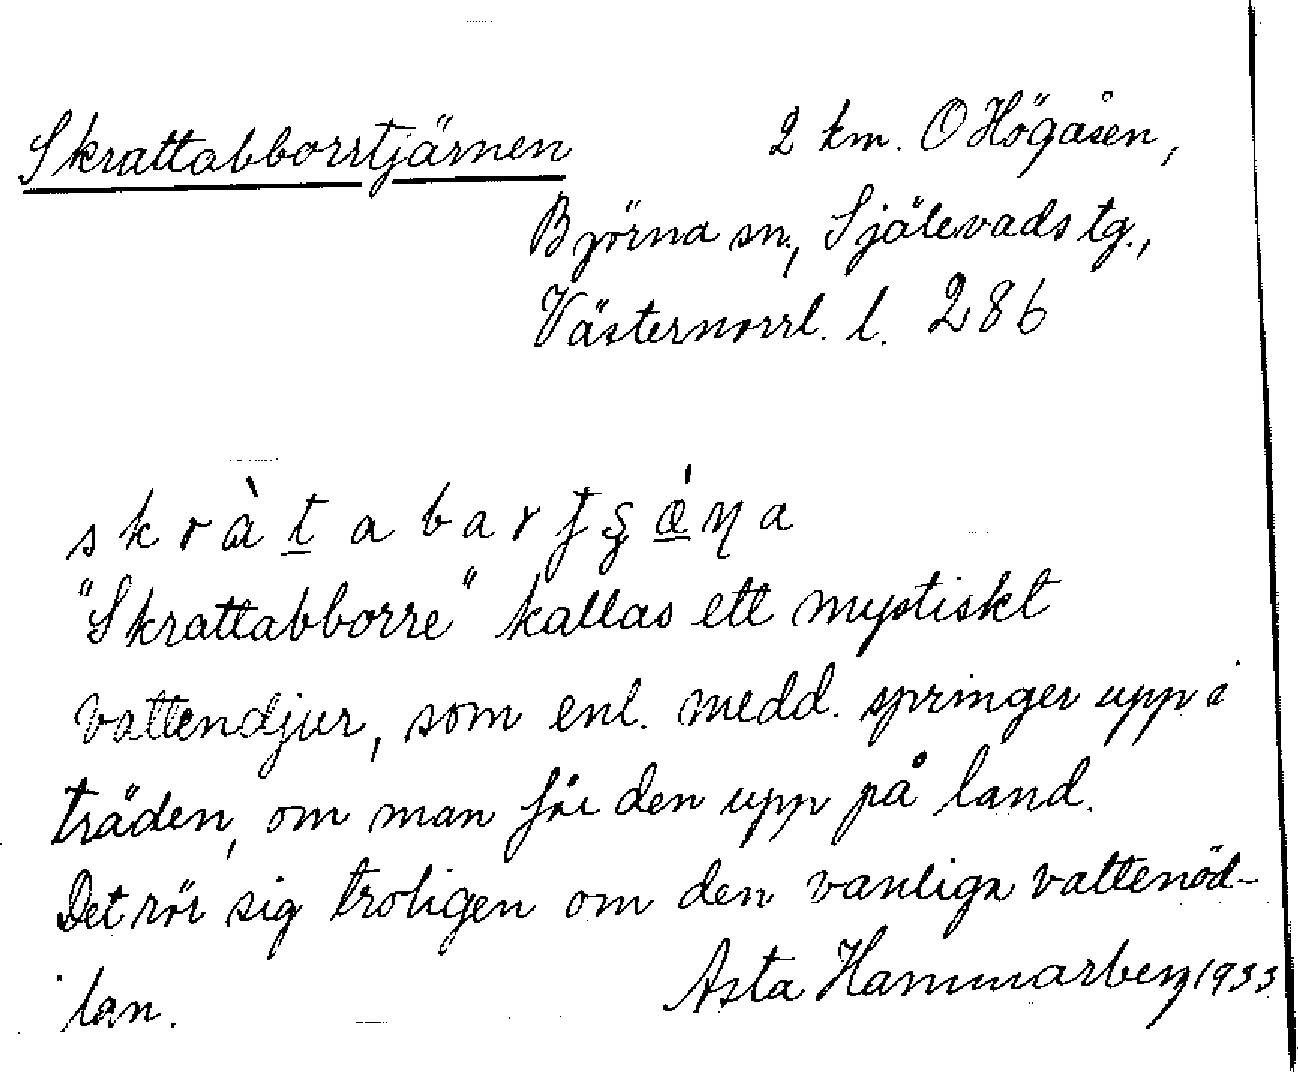 Skrattabborrtjärnen
2 km. O Högåsen,
Björna sn., Själevads tg.,
Västernorrl. l. 286
skràt̠abart̡ʂǽ̠ɳa
"Skrattabborre" kallas ett mystiskt
vattendjur, som enl. medd. springer upp i
träden, om man får den upp på land.
Det rör sig troligen om den vanliga vattenöd-
lan.
Asta Hammarberg 1933